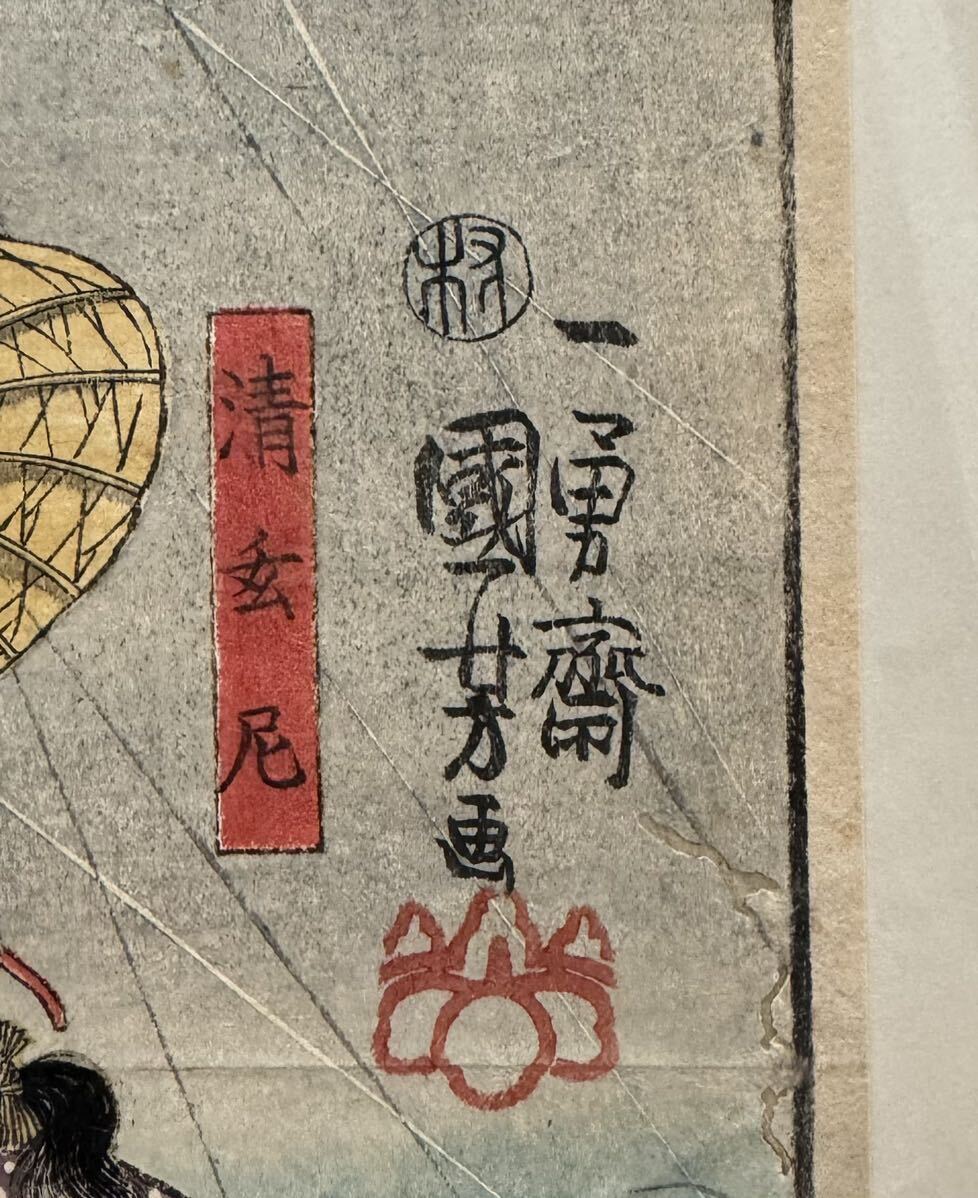 一勇齋
國芳画
村
清玄尼